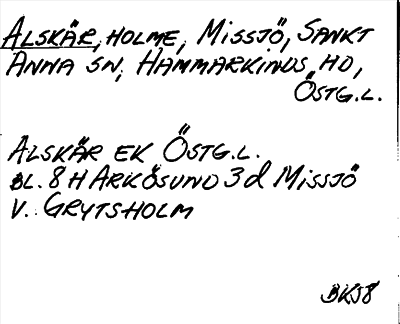 ALSKÄR, HOLME, MISSJÖ, SANKT
ANNA SN, HAMMARKINDS HD,
ÖSTG.L.
ALSKÄR EK ÖSTG.L.
BL. 8 H ARKÖSUND 3d MISSJÖ
V. GRYTSHOLM
BK58